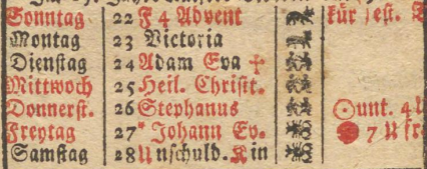 Sonntag 22 F 4 Advent kür
Montag 23 Victoria
Dienstag 24 Adam Eva ☩
Mittwoch 25 Heil. Christt.
Donnerst. 26 Stephanus ☉unt. 4
Freytag 27 * Johann Ev. 7 U
Samstag 28 Unschuld. Kin